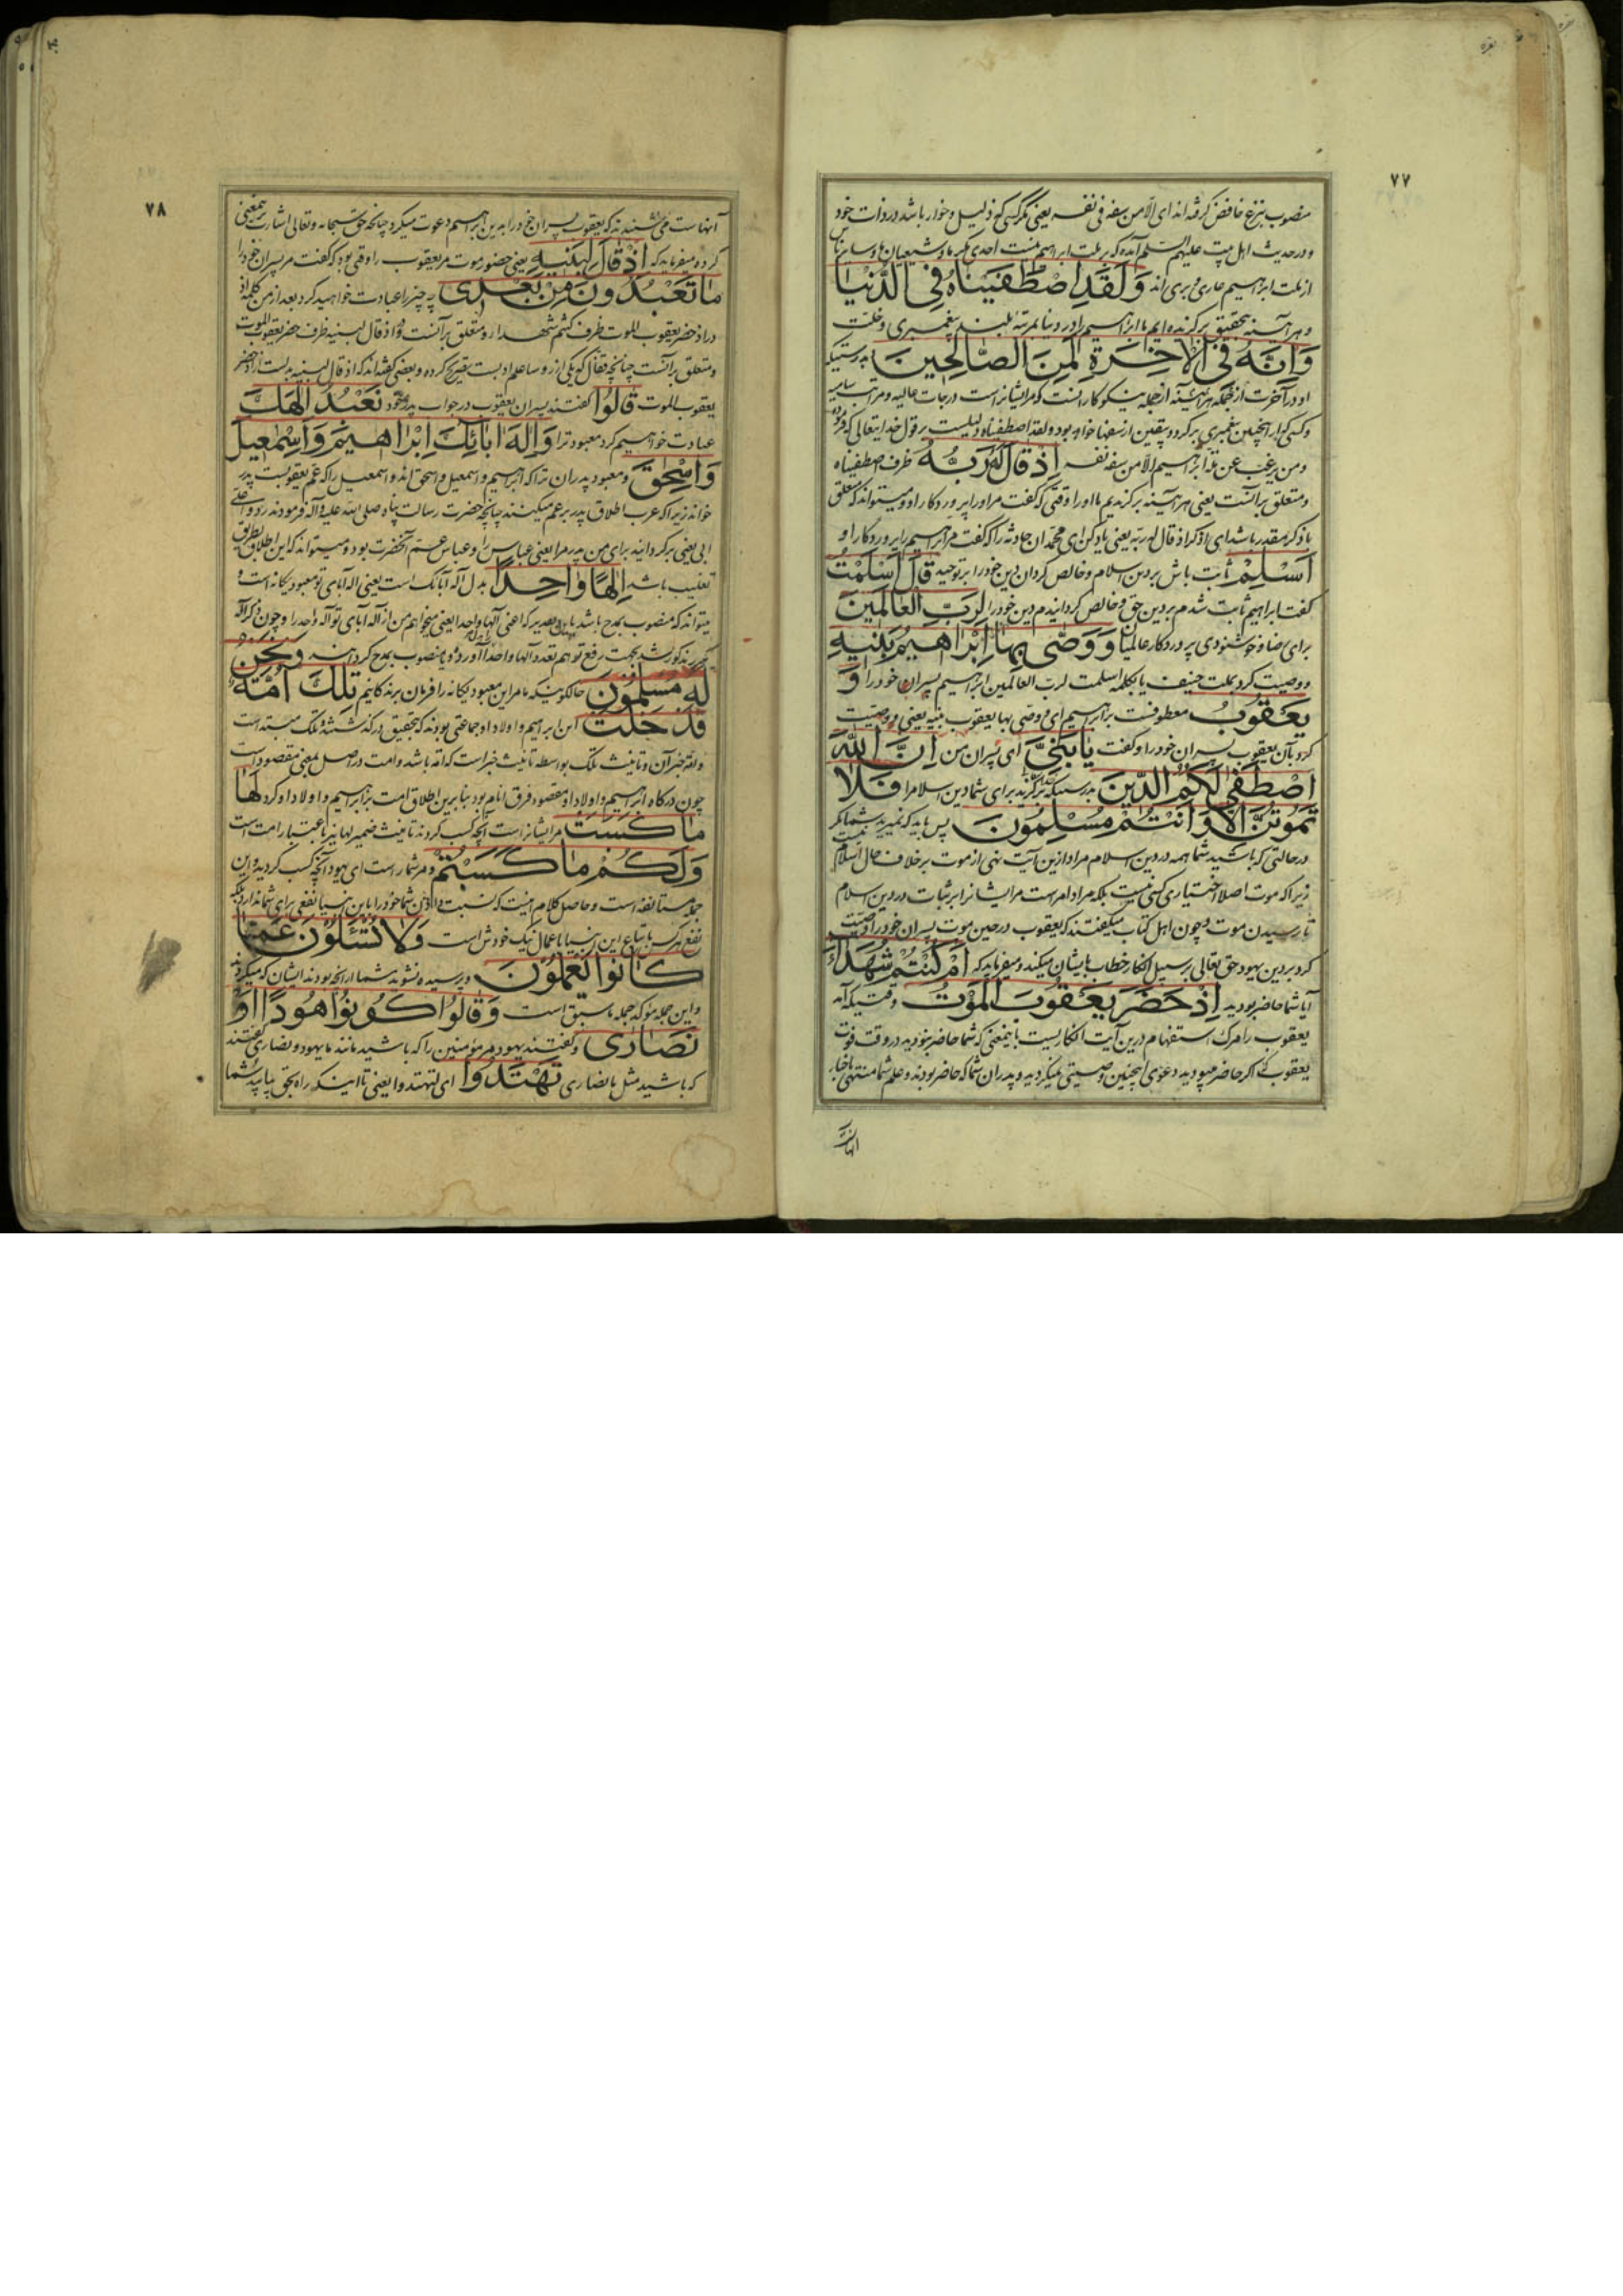 ۷۷
منصوب بنزع خافض گرفته اند ای الا من سفه فی نفسه یعنی مگر کسی که ذلیل و خوار باشد در ذات خود
و در حدیث اهل بیت علیهم السلام آمده که بر ملت ابراهیم نیست احدی مگر ما و شیعیان ما و سایر ناس
از ملت ابراهیم عاری و بری اند وَلَقَدِ اصْطَفَيْنَاهُ فِي الدُّنْيَا
و هر آینه بتحقیق برگزیده ایم ما ابراهیم را در دنیا بمرتبه بلند پیغمبری و خلت
وَاِنَّهُ فِي الْاٰخِرَةِ لَمِنَ الصَّالِحِينَ بدرستیکه
او در آخرت از جمله هر آینه از جمله نیکوکارانست که مر ایشانراست درجات عالیه و مراتب سامیه
و کسی که از اینچنین پیغمبری برگردد بیقین از سفها خواهد بود ولقد اصطفیناه دلیلیست بر قول خدایتعالی که فرموده
ومن یرغب عن ملة ابراهیم الا من سفه نفسه اِذْ قَالَ لَهُ رَبُّهُ ظرف اصطفیناه
و متعلق بر آنست یعنی هر آینه برگزیدیم ما او را وقتی که گفت مر او را پروردگار او و میتواند که متعلق
باذکر مقدر باشد ای اذکر اذ قال له ربه یعنی یاد کن ای محمد آن حادثه را که گفت مر ابراهیم را پروردگار او
اَسْلِمْ ثابت باش بر دین اسلام و خالص گردان دین خود را بر توحید قَالَ اَسْلَمْتُ
گفت ابراهیم ثابت شدم بر دین حق و خالص گردانیدم دین خود را لِرَبِّ الْعَالَمِينَ
برای رضا و خوشنودی پروردگار عالمیان وَوَصّٰى بِهَا اِبْرَاهِيمُ بَنِيهِ
و وصیت کرد بملت حنیف یا بکلمه اسلمت لرب العالمین ابراهیم پسران خود را وَ
يَعْقُوبُ معطوفست بر ابراهیم ای و وصی بها یعقوب بنیه یعنی و وصیت
کرد بآن یعقوب پسران خود را و گفت يَا بَنِيَّ ای پسران من اِنَّ اللّٰهَ
اصْطَفٰى لَكُمُ الدِّينَ بدرستیکه خدا برگزید برای شما دین اسلام را فَلَا
تَمُوتُنَّ اِلَّا وَاَنْتُمْ مُسْلِمُونَ پس باید که نمیرید شما مگر
در حالتی که باشید شما همه در دین اسلام مراد ازین آیت نهی از موت بر خلاف حال اسلام نیست
زیرا که موت اصلا اختیاری کسی نیست بلکه مراد امر است مر ایشانرا بر ثبات در دین اسلام
تا رسیدن موت و چون اهل کتاب میگفتند که یعقوب در حین موت پسران خود را وصیت
کرد بر دین یهود حق تعالی بر سبیل انکار خطاب بایشان میکند و میفرماید که اَمْ كُنْتُمْ شُهَدَاءَ
آیا شما حاضر بودید اِذْ حَضَرَ يَعْقُوبَ الْمَوْتُ وقتیکه آمد
یعقوب را مرگ استفهام درین آیت انکاریست باینمعنی که شما حاضر نبودید در وقت فوت
یعقوب که اگر حاضر میبودید دعوی اینچنین وصیتی نمیکردید و پدران شما که حاضر بودند و علم شما منتهی باخبار
۷۸
آنهاست می شنیدند که یعقوب پسران خود را بدین ابراهیم دعوت میکرد چنانچه حق سبحانه و تعالی اشارت بهمین
کرده میفرماید که اِذْ قَالَ لِبَنِيهِ یعنی حضور موت مر یعقوب را وقتی بود که گفت مر پسران خود را
مَا تَعْبُدُونَ مِنْ بَعْدِي چه چیز را عبادت خواهید کرد بعد از من کلمه اذ
در اذ حضر یعقوب الموت ظرف کنتم شهداء و متعلق بر آنست و اذ قال لبنیه ظرف حضر یعقوب الموت
و متعلق بر آنست چنانچه قفال که یکی از رؤسا علم ادبست تصریح کرده و بعضی گفته اند که اذ قال لبنیه بدلست از اذ حضر
یعقوب الموت قَالُوا گفتند پسران یعقوب در جواب پدر خود نَعْبُدُ اِلٰهَكَ
عبادت خواهیم کرد معبود ترا وَاِلٰهَ اٰبَائِكَ اِبْرَاهِيمَ وَاِسْمٰعِيلَ
وَاِسْحٰقَ و معبود پدران ترا که ابراهیم و اسمعیل و اسحق اند و اسمعیل را که عم یعقوبست پدر
خواند زیرا که عرب اطلاق پدر بر عم میکنند چنانچه حضرت رسالت پناه صلی الله علیه و آله فرمودند ردوا علی
ابی یعنی برگردانید برای من پدر مرا یعنی عباس را و عباس عم آنحضرت بود و میتواند که این اطلاق بطریق
تغلیب باشد اِلٰهًا وَاحِدًا بدل اله آبائک است یعنی اله آبای تو معبود یگانه است و
میتواند که منصوب بمدح باشد باین تقدیر که اعنی الها واحدا یعنی میخواهم من از اله آبای تو اله واحد را و چون ذکر اله
مکرر مذکور شد بجهت رفع توهم تعدد الها واحدا آورده و یا منصوب بمدح گردانید وَنَحْنُ
لَهُ مُسْلِمُونَ حالکونیکه ما مر این معبود یگانه را فرمان برندگانیم تِلْكَ اُمَّةٌ
قَدْ خَلَتْ این ابراهیم و اولاد او جماعتی بودند که بتحقیق در گذشتند تلک مبتداست
و امة خبر آن و تأنیث تلک بواسطه تأنیث خبر است که امة باشد و امت در اصل بمعنی مقصود است
چون درگاه ابراهیم و اولاد او مقصود فرق انام بود بنابرین اطلاق امت بر ابراهیم و اولاد او کرد لَهَا
مَا كَسَبَتْ مر ایشانراست آنچه کسب کردند تأنیث ضمیر لها نیز باعتبار امت است
وَلَكُمْ مَا كَسَبْتُمْ و مر شمار است ای یهود آنچه کسب کردید و این
جمله مستانفه است و حاصل کلام اینست که نسبت دادن شما خود را باین انبیا نفعی برای شما ندارد بلکه
نفع هر کس باتباع این انبیا باعمال نیک خودش است وَلَا تُسْئَلُونَ عَمَّا
كَانُوا يَعْمَلُونَ و پرسیده نشوند شما از آنچه بودند ایشان که میکردند
و این جمله مؤکد جمله ماسبق است وَقَالُوا كُونُوا هُودًا اَوْ
نَصَارٰى و گفتند یهود مر مؤمنین را که باشید مانند ما یهود و نصاری گفتند
که باشید مثل ما نصاری تَهْتَدُوا ای لتهتدوا یعنی تا اینکه راه بحق یابید شما